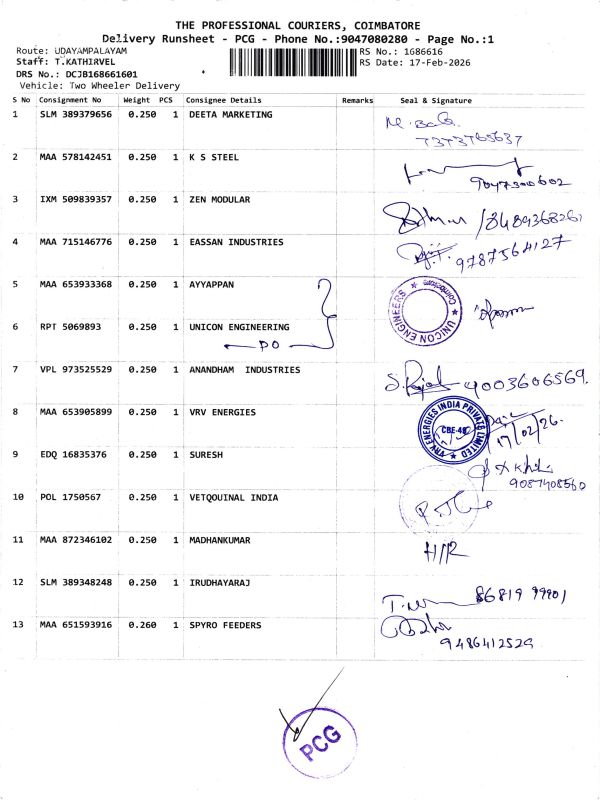 THE PROFESSIONAL COURIERS, COIMBATORE
Delivery Runsheet - PCG - Phone No.:9047080280 - Page No.:1
Route: UDAYAMPALAYAM
RS No.: 1686616
Staff: T.KATHIRVEL
RS Date: 17-Feb-2026
DRS No.: DCJB168661601
Vehicle: Two Wheeler Delivery
S No Consignment No Weight PCS Consignee Details Remarks Seal & Signature
1 SLM 389379656 0.250 1 DEETA MARKETING
2 MAA 578142451 0.250 1 K S STEEL
9047300602
3 IXM 509839357 0.250 1 ZEN MODULAR
8489368261
4 MAA 715146776 0.250 1 EASSAN INDUSTRIES
9787564127
5 MAA 653933368 0.250 1 AYYAPPAN
UNICON ENGINEERS
6 RPT 5069893 0.250 1 UNICON ENGINEERING
DO
7 VPL 973525529 0.250 1 ANANDHAM INDUSTRIES
9003606569.
8 MAA 653905899 0.250 1 VRV ENERGIES
VRV ENERGIES INDIA PRIVATE LIMITED
CBE-49
17/02/26.
9 EDQ 16835376 0.250 1 SURESH
9087408560
10 POL 1750567 0.250 1 VETQOUINAL INDIA
11 MAA 872346102 0.250 1 MADHANKUMAR
H/R
12 SLM 389348248 0.250 1 IRUDHAYARAJ
86819 99901
13 MAA 651593916 0.260 1 SPYRO FEEDERS
9486412529
PCG